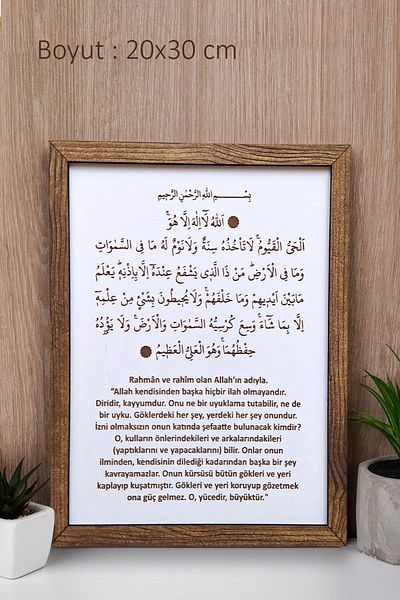 Boyut : 20x30 cm
بِسْمِ اللهِ الرَّحْمٰنِ الرَّحِيمِ
اَللهُ لَٓا اِلٰهَ اِلَّا هُوَۚ
اَلْحَيُّ الْقَيُّومُۚ لَا تَأْخُذُهُ سِنَةٌ وَلَا نَوْمٌۜ لَهُ مَا فِى السَّمٰوَاتِ
وَمَا فِى الْاَرْضِۜ مَنْ ذَا الَّذ۪ى يَشْفَعُ عِنْدَهُٓ اِلَّا بِاِذْنِه۪ۜ يَعْلَمُ
مَا بَيْنَ اَيْد۪يهِمْ وَمَا خَلْفَهُمْۚ وَلَا يُح۪يطُونَ بِشَىْءٍ مِنْ عِلْمِه۪ٓ
اِلَّا بِمَا شَٓاءَۚ وَسِعَ كُرْسِيُّهُ السَّمٰوَاتِ وَالْاَرْضَۚ وَلَا يَؤُ۫دُهُ
حِفْظُهُمَاۚ وَهُوَ الْعَلِىُّ الْعَظ۪يمُ
Rahmân ve rahîm olan Allah'ın adıyla.
"Allah kendisinden başka hiçbir ilah olmayandır.
Diridir, kayyumdur. Onu ne bir uyuklama tutabilir, ne de
bir uyku. Göklerdeki her şey, yerdeki her şey onundur.
İzni olmaksızın onun katında şefaatte bulunacak kimdir?
O, kulların önlerindekileri ve arkalarındakileri
(yaptıklarını ve yapacaklarını) bilir. Onlar onun
ilminden, kendisinin dilediği kadarından başka bir şey
kavrayamazlar. Onun kürsüsü bütün gökleri ve yeri
kaplayıp kuşatmıştır. Gökleri ve yeri koruyup gözetmek
ona güç gelmez. O, yücedir, büyüktür."